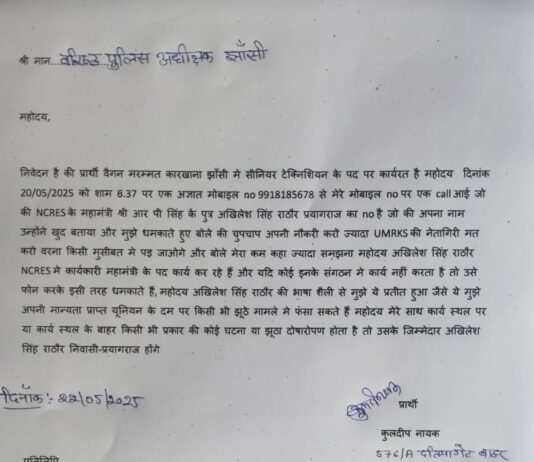 श्री मान...वरिष्ठ पुलिस अधीक्षक झाँसी
महोदय,
निवेदन है की प्रार्थी वैगन मरम्मत कारखाना झाँसी मे सीनियर टेक्निशियन के पद पर कार्यरत है महोदय दिनांक
20/05/2025 को शाम 6.37 पर एक अज्ञात मोबाइल no 9918185678 से मेरे मोबाइल no पर एक call आई जो
की NCRES के महामंत्री श्री आर पी सिंह के पुत्र अखिलेश सिंह राठौर प्रयागराज का no है जो की अपना नाम
उन्होंने खुद बताया और मुझे धमकाते हुए बोले की चुपचाप अपनी नौकरी करो ज्यादा UMRKS की नेतागिरी मत
करो वरना किसी मुसीबत मे पड़ जाओगे और बोले मेरा कम कहा ज्यादा समझना महोदय अखिलेश सिंह राठौर
NCRES मे कार्यकारी महामंत्री के पद कार्य कर रहे हैं और यदि कोई इनके संगठन मे कार्य नहीं करता है तो उसे
फोन करके इसी तरह धमकाते हैं, महोदय अखिलेश सिंह राठौर की भाषा शैली से मुझे ये प्रतीत हुआ जैसे ये मुझे
अपनी मान्यता प्राप्त यूनियन के दम पर किसी भी झूठे मामले मे फंसा सकते हैं महोदय मेरे साथ कार्य स्थल पर
या कार्य स्थल के बाहर किसी भी प्रकार की कोई घटना या झूठा दोषारोपण होता है तो उसके जिम्मेदार अखिलेश
सिंह राठौर निवासी-प्रयागराज होंगे
दिनाँक :- 22/05/2025
प्रार्थी
कुलदीप नायक
576/A दतियागेट बाहर
प्रतिलिपि